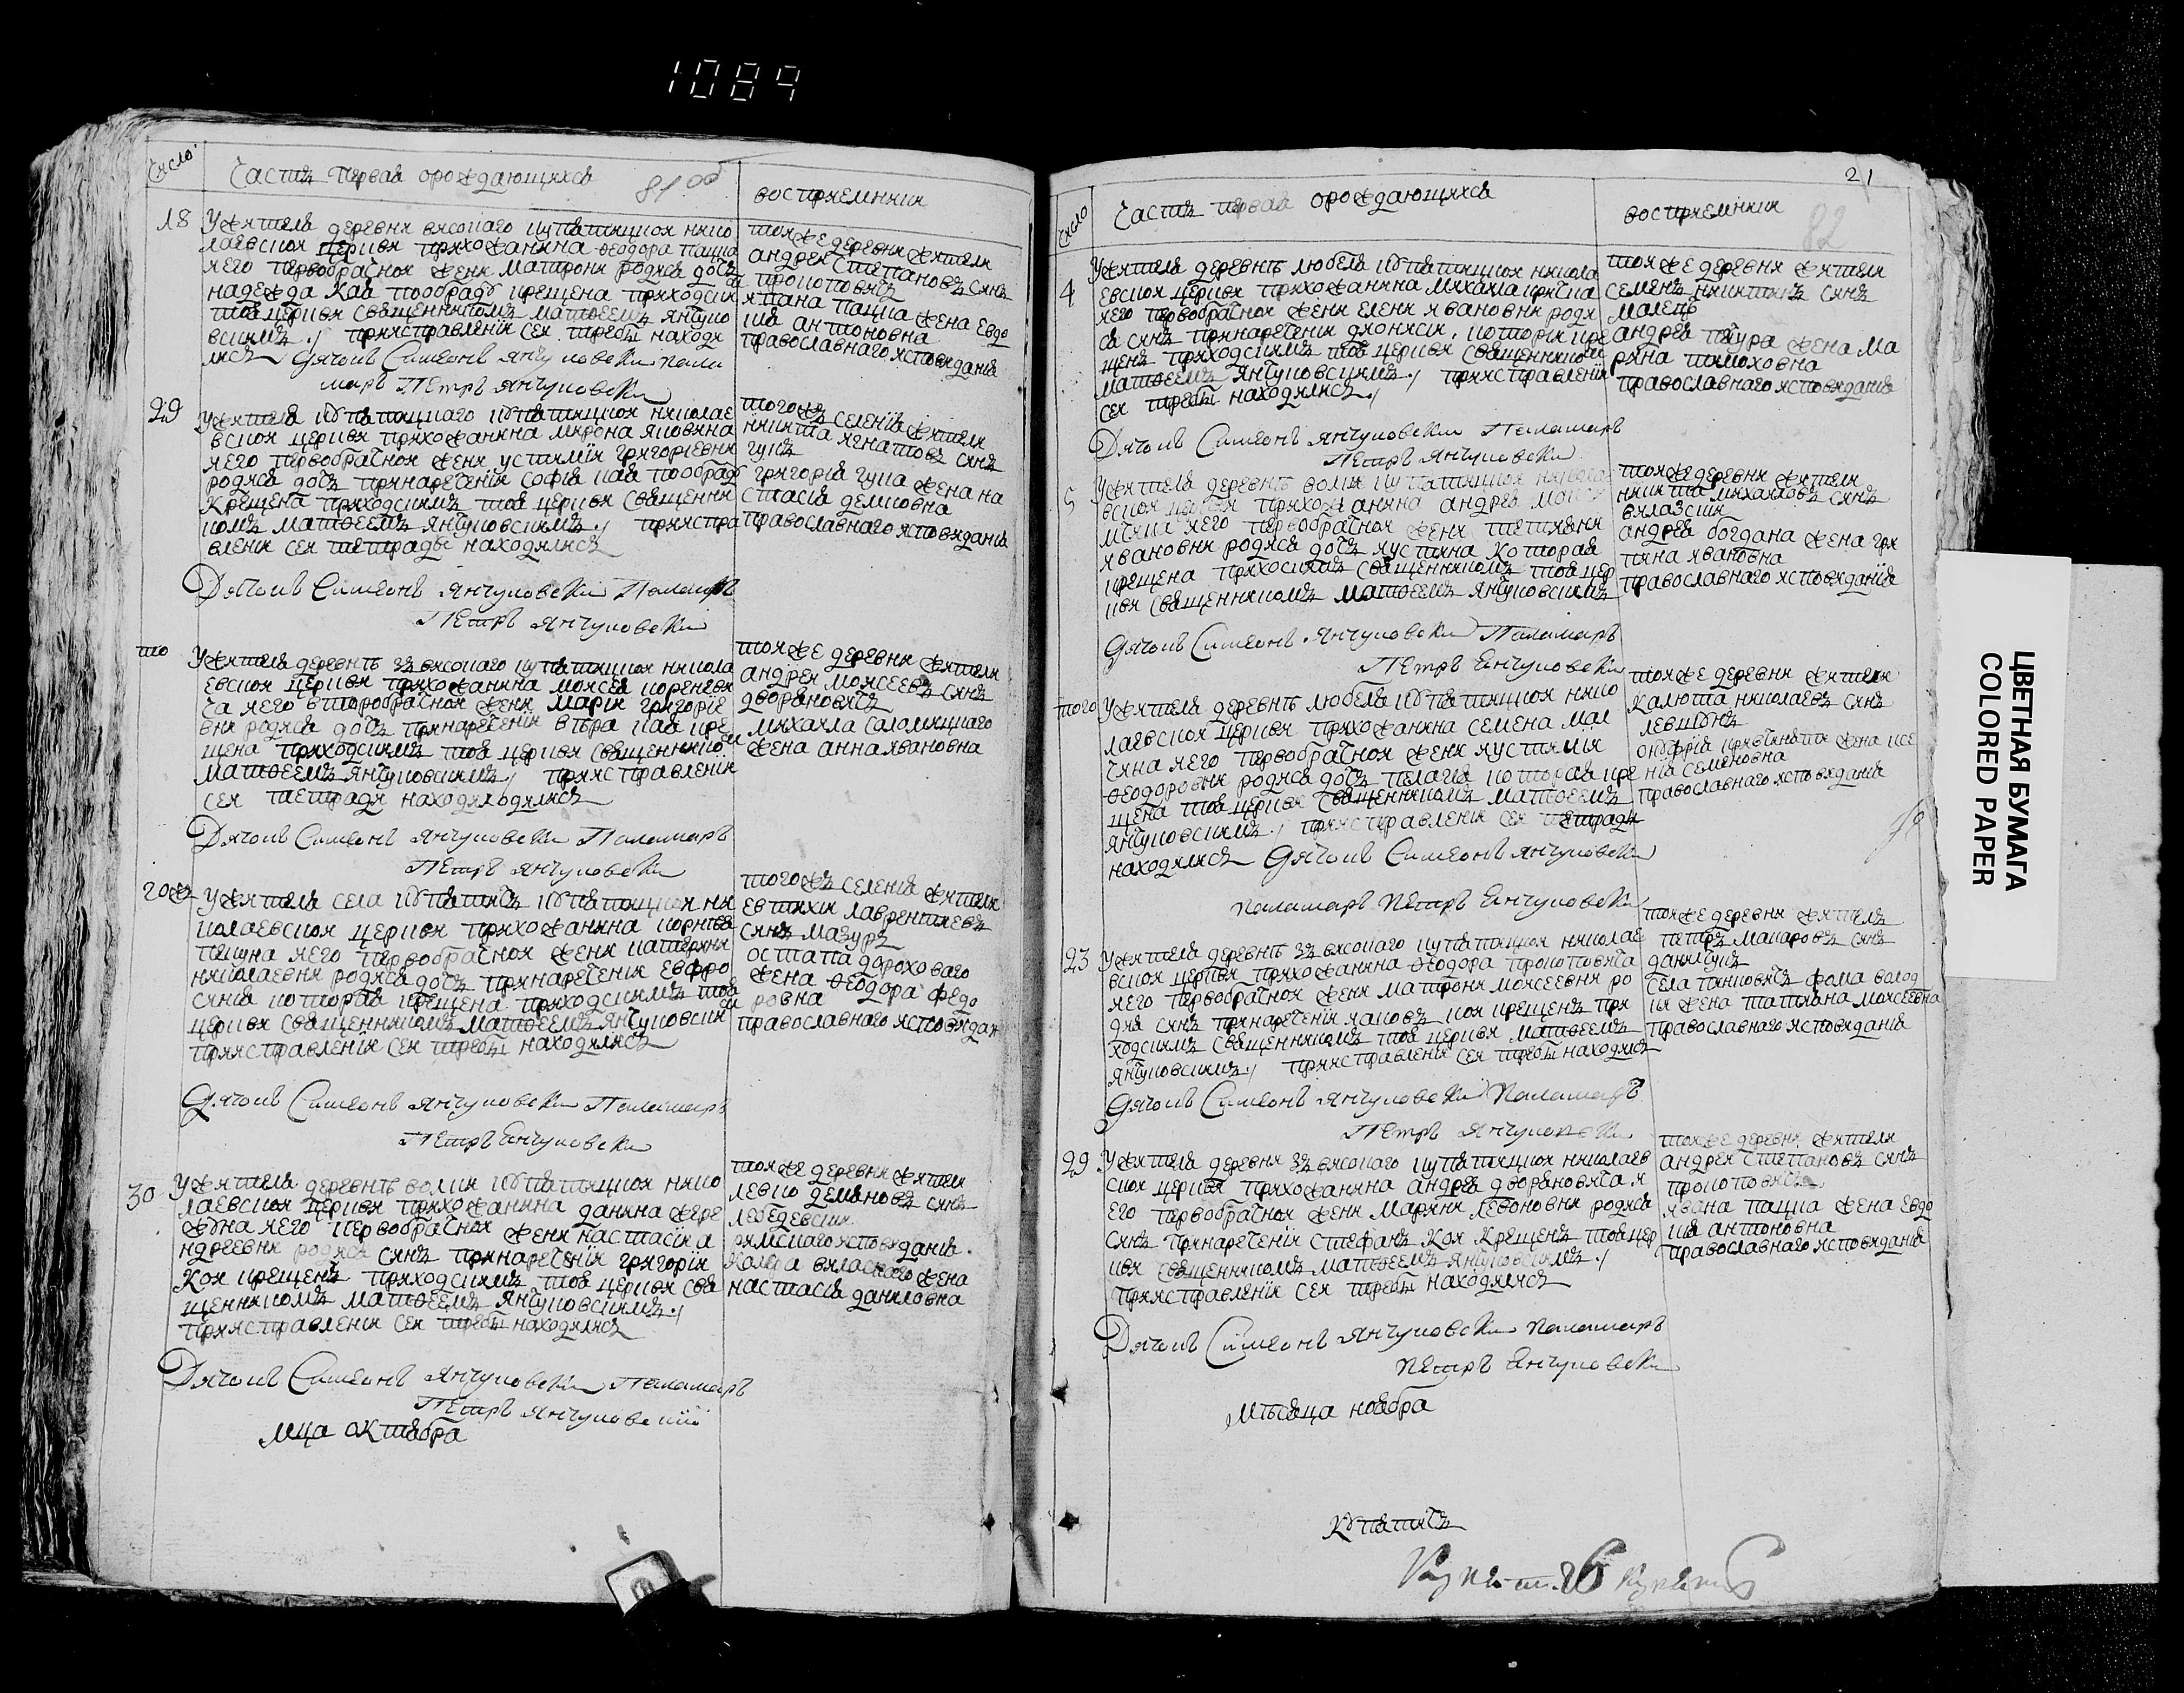 1089
число
Часть первая ораждающихся
81 об
восприемники
18
Ужителя деревни высоцаго купятицкоя нико
лаевскоя церкви прихожанина Феодора пацка
иего первобрачноя жени матрони родися дочь
надежда кая пообряд крещена приходским
тоя церкви священником матфеем янчуко
вским ./ приисправлении сея требы находи
лись Дячокъ Симеонъ Янчуковски пала
маръ Петръ Янчуковски
тояже деревни жители
андрей степановъ сынъ
прокоповичъ
ивана пацка жена Евдо
кия антоновна
православнаго исповидания
29
ужителя купятицкаго купятицкоя николае
вскоя церкви прихожанина мирона яковина
иего первобрачноя жени устимии григориевни
родися дочь принаречении софия кая пообряд
Крещена приходским тоя церкви священни
ком матфеем янчуковским ./ приispра
влении сея тетради находились
Дячокъ Симеонъ Янчуковски Паламаръ
Петръ Янчуковски
тогожъ селения жители
никита игнатовъ сынъ
гукъ
григория гука жена на
стасия демковна
православнаго исповидания
то
Ужителя деревнѣ зъ высоцаго купятицкоя никола
евскоя церкви прихожанина моисея кореневи
ча иего второбрачноя жени марии григорие
вни родися дочь принаречении вѣра кая кре
щена приходским тоя церкви священником
матфеем янчуковским ./ приисправлении
сея тетради находиходились
Дячокъ Симеонъ Янчуковски Паламаръ
Петръ Янчуковски
тояже деревни жители
андрей моисеевъ сынъ
двораковичъ
михаила саломицкаго
жена анна ивановна
20жъ
Ужителя села купятичъ купятицкоя ни
колаевскоя церкви прихожанина корнѣя
пецуна иего первобрачноя жени катерини
николаевни родися дочь принаречении евфро
синия котория крещена приходским тоя
церкви священником матфеем янчуковским
приисправлении сея требы находились
Дячокъ Симеонъ Янчуковски Паламаръ
Петръ Янчуковски
тогожъ селения жители
евтихий лаврентиевъ
сынъ мазуръ
остапа дороховаго
жена феодора федо
ровна
православнаго исповидан
30
Ужителя деревнѣ волки купятицкоя нико
лаевскоя церкви прихожанина данила жере
жуна иего первобрачноя жени настасии а
ндреевни родися сынъ принаречении григорий
Кой крещенъ приходским тоя церкви свя
щенником матфеем янчуковским ./
приисправлении сея требы находились
Дячокъ Симеонъ Янчуковски Паламаръ
Петръ Янчуковский
мца октября
тояже деревни жители
левко демяновъ сынъ
лебедевский
римскаго исповидания.
настасия даниловна
21
число
Часть первая ораждающихся
восприемники
82
4
Ужителя деревнѣ любеля купятицкоя никола
евскоя церкви прихожанина михаила критка
иего первобрачноя жени елени ивановни роди
ся сынъ принаречении дионисий, которий кре
щенъ приходским тоя церкви священником
матфеем янчуковским ./ приисправлении
сея требы находились ./
Дячокъ Симеонъ Янчуковски Паламаръ
Петръ Янчуковски
тояже деревни жители
семенъ никитинъ сынъ
малецъ
андрея пцура жена ма
рина тимоховна
православнаго исповидания
5
Ужителя деревнѣ волки купятицкоя никола
вскоя церкви прихожанина андрея
иего первобрачноя жени тетияни
ивановни родися дочь иустина которая
крещена прихоским священником тоя цер
кви священником матфеем янчуковским
Дячокъ Симеонъ Янчуковски Паламаръ
Петръ Янчуковски
тояже деревни жители
никита михайловъ сынъ
вялаский
андрея богдана жена гри
пина ивановна
православнаго исповидания
того
Ужителя деревнѣ любеля купятицкоя нико
лаевскоя церкви прихожанина семена мал
чина иего первобрачноя жени иустимии
феодоровни родися дочь пелагия котория кре
щена тоя церкви священником матфеем
янчуковским ./ приисправлении сея тетради
находились Дячокъ Симеонъ Янчуковски
паламаръ Петръ Янчуковски
тояже деревни жители
Калюта николаевъ сынъ
левшунъ
жена ксе
ния семеновна
православнаго исповидания
23
Ужителя деревнѣ зъ высоцаго купятицкоя николае
вскоя церкви прихожанина феодора прокоповича
иего первобрачноя жени матрони моисеевни ро
дися сынъ принаречении иаковъ кой крещенъ при
ходским священником тоя церкви матфеем
янчуковским ./ приисправлении сея требы находились
Дячокъ Симеонъ Янчуковски Паламаръ
Петръ Янчуковски
тояже деревни жителъ
петръ макаровъ сынъ
данилукъ
села пинковичъ фома волод
ки жена татияна моисеевна
православнаго исповидания
29
Ужителя деревни зъ высоцаго купятицкоя николаев
скоя церкви прихожанина андрея двораковича и
его первобрачноя жени марини левоновни родися
сынъ принаречении стефанъ Кой Крещенъ тоя цер
кви священником матфеем янчуковским ./
приисправлении сея требы находились
Дячокъ Симеонъ Янчуковски паламаръ
Петръ Янчуковски
тояже деревни жители
андрей степановъ сынъ
прокоповичъ
ивана пацка жена Евдо
кия антоновна
православнаго исповидания
Мѣсяца ноября
Купятичъ
ЦВЕТНАЯ БУМАГА
COLORED PAPER